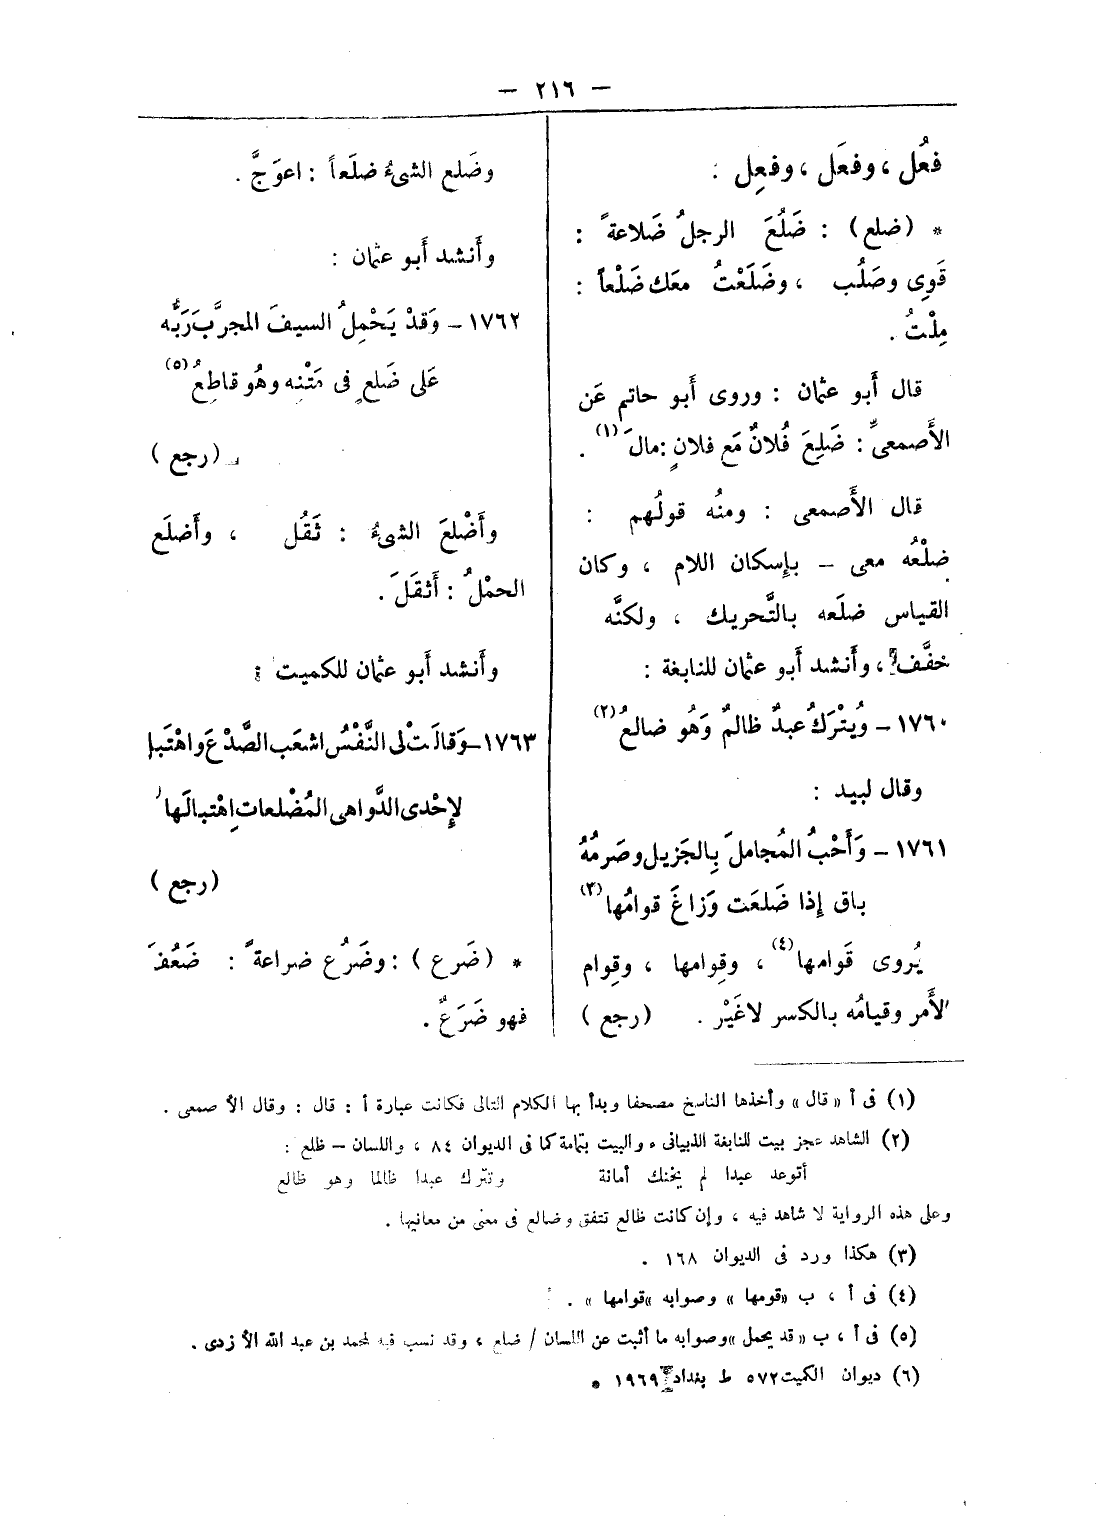 — ٢١٦ —
فعُل ، وفعَل ، وفعِل :
* (ضلع) : ضَلُعَ الرجلُ ضَلاعةً :
قَوِى وصَلُب ، وضَلَعْتُ معَك ضَلْعاً :
مِلْتُ .
قال أَبو عثمان : وروى أَبو حاتم عَن
الأَصمعىِّ : ضَلِعَ فُلانٌ مَع فلانٍ : مالَ (١) .
قال الأَصمعى : ومنُه قولُهم :
ضلْعُه معى – بإِسكان اللام ، وكان
القياس ضلَعه بالتَّحريك ، ولكنَّه
خفَّف ، وأَنشد أَبو عثمان للنابغة :
١٧٦٠ – وُيتْرَكُ عبدٌ ظالمٌ وَهُو ضالعُ (٢)
وقال لبيد :
١٧٦١ – وَأَحْبُ المُجاملَ بِالجَزيل وصَرمُهُ
باق إِذا ضَلَعَت وَزاغَ قوامُها (٣)
يُروى قَوامها (٤) ، وقِوامها ، وقِوام
الأَمر وقيامُه بالكسر لاغَيْر . (رجع)
وضَلع الشىءُ ضلَعاً : اعوَجَّ .
وأَنشد أَبو عثمان :
١٧٦٢ – وَقدْ يَحْمِلُ السيفَ المجرَّبَ رَبُّه
عَلى ضَلَعٍ فى مَتْنِه وهُو قاطِعُ (٥)
(رجع)
وأَضْلعَ الشىءُ : ثَقُل ، وأَضلَع
الحمْلُ : أَثقلَ .
وأَنشد أَبو عثمان للكميت :
١٧٦٣ – وَقالَتْ لى النَّفْسُ اشعَب الصَّدْعَ واهْتَبِل
لإِحْدى الدَّواهى المُضْلعات اِهْتبالَها
(رجع)
* (ضَرع) : وضَرُع ضراعةً : ضَعُفَ
فهو ضَرَعٌ .
(١) فى أ «قال» وأخذها الناسخ مصحفا وبدأ بها الكلام التالى فكانت عبارة أ : قال : وقال الأصمعى .
(٢) الشاهد عجز بيت للنابغة الذبيانى ، والبيت بتمامة كما فى الديوان ٨٤ ، واللسان – ظلع :
أتوعد عبدا لم يخنك أمانة وتترك عبدا ظالما وهو ظالع
وعلى هذه الرواية لا شاهد فيه ، وإن كانت ظالع تتفق وضالع فى معنى من معانيها .
(٣) هكذا ورد فى الديوان ١٦٨ .
(٤) فى أ ، ب «قومها» وصوابه «قوامها» .
(٥) فى أ ، ب «قد يحمل» وصوابه ما أثبت عن اللسان / ضلع ، وقد نسب فيه لمحمد بن عبد الله الأزدى .
(٦) ديوان الكميت ٥٧٢ ط بغداد ١٩٦٩ .